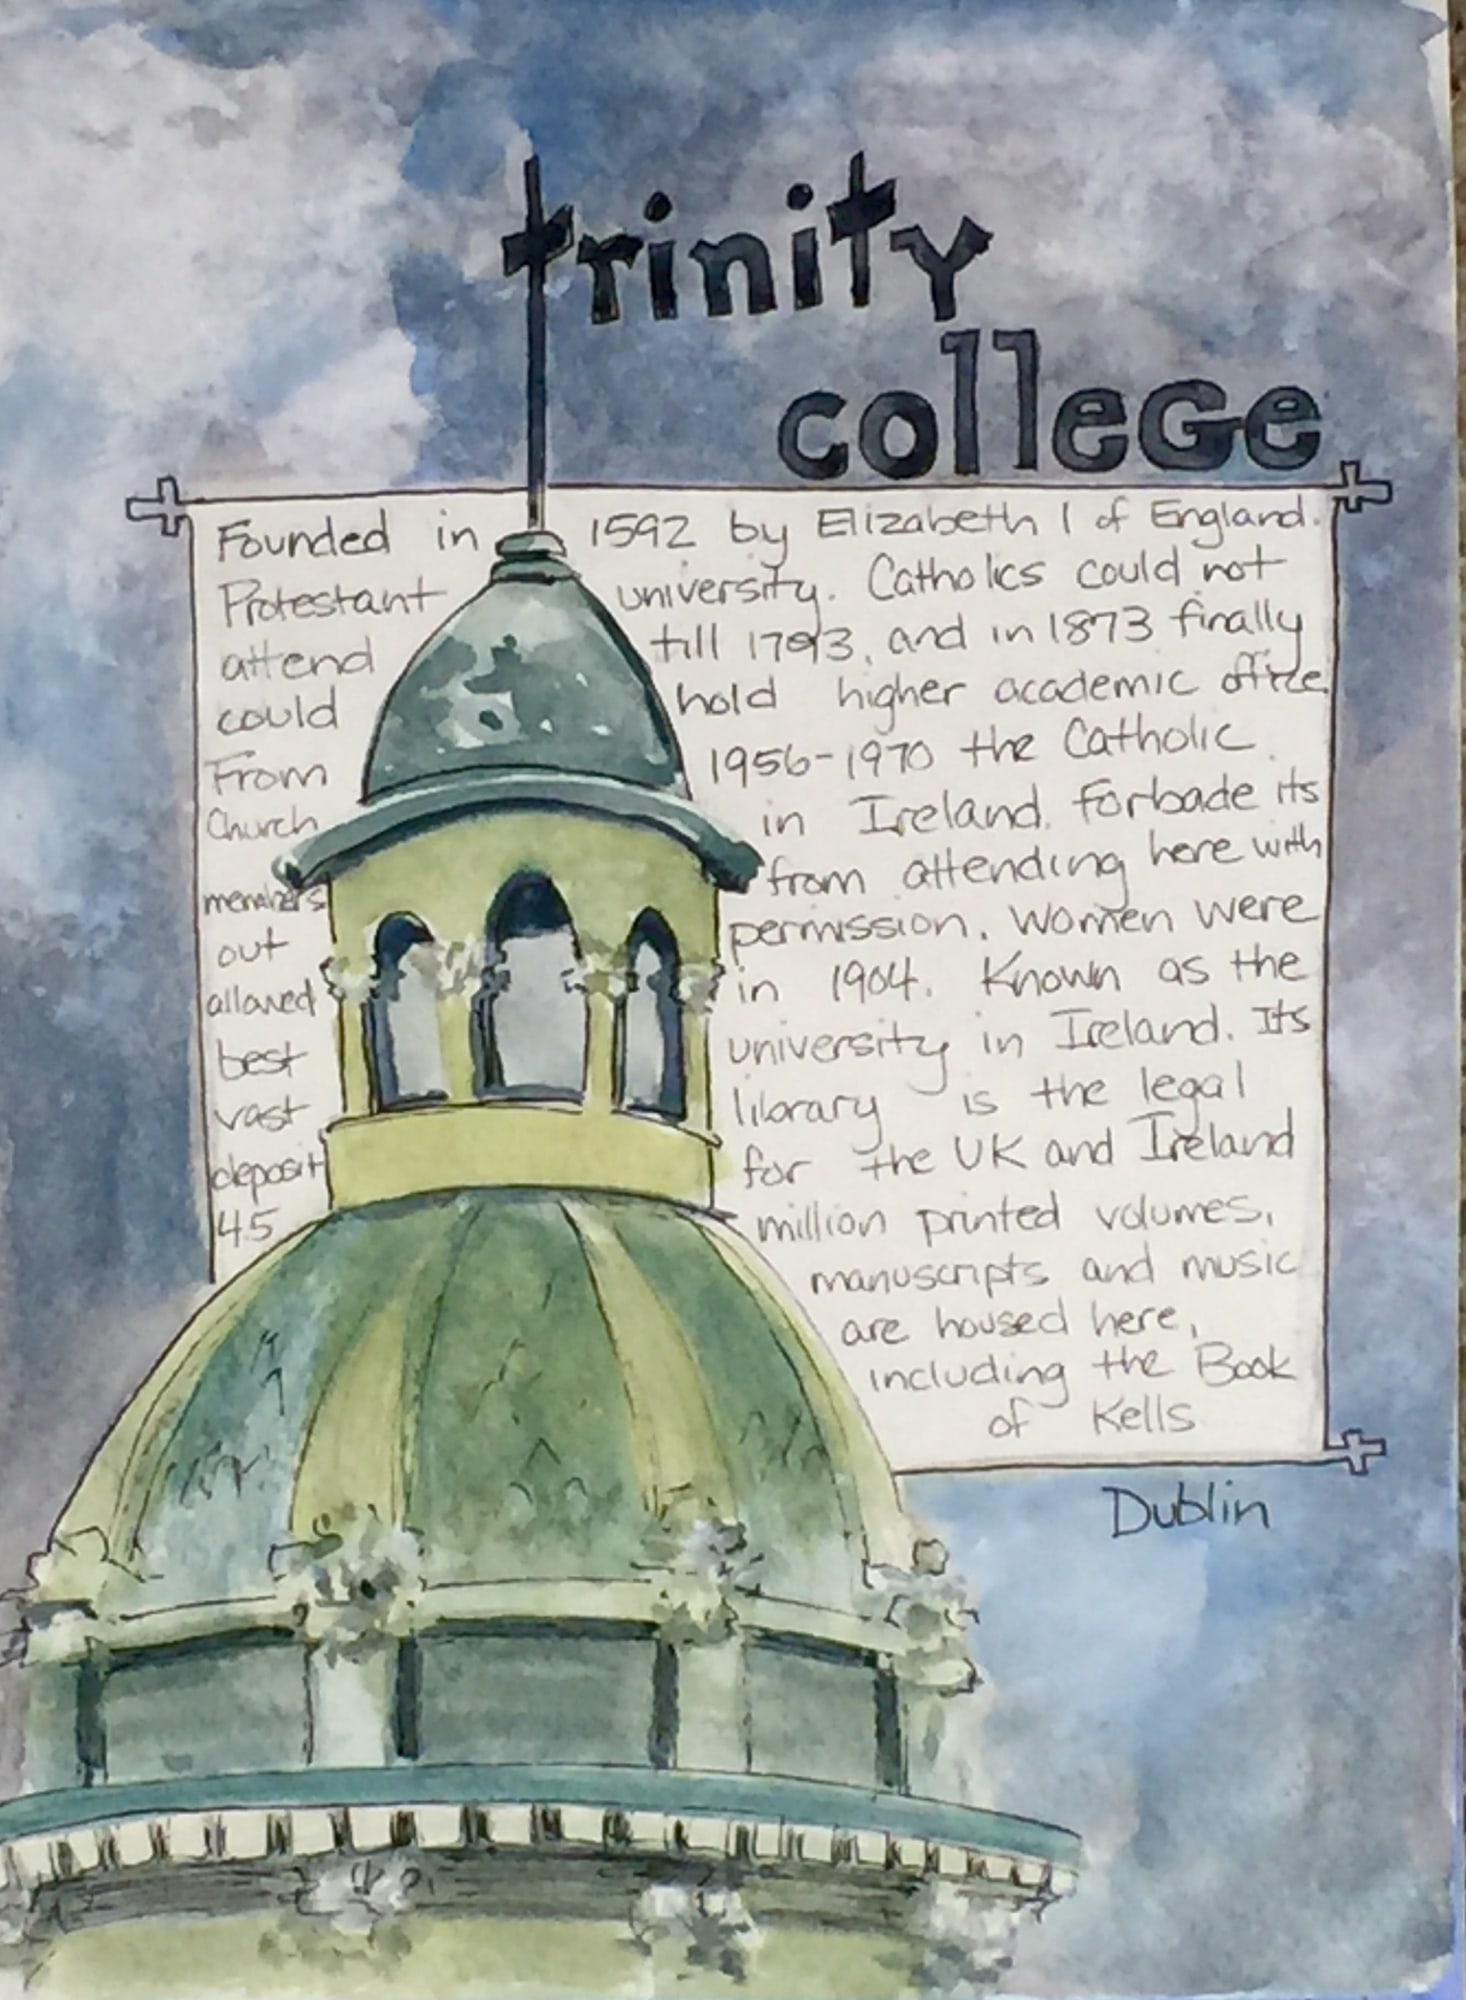 trinity
college
Founded in 1592 by Elizabeth I of England.
Protestant university. Catholics could not
attend till 1793, and in 1873 finally
could hold higher academic office
From 1956-1970 the Catholic
Church in Ireland forbade its
members from attending here with
out permission. Women were
allowed in 1904. Known as the
best university in Ireland. Its
vast library is the legal
deposit for the UK and Ireland
45 million printed volumes,
manuscripts and music
are housed here,
including the Book
of Kells
Dublin